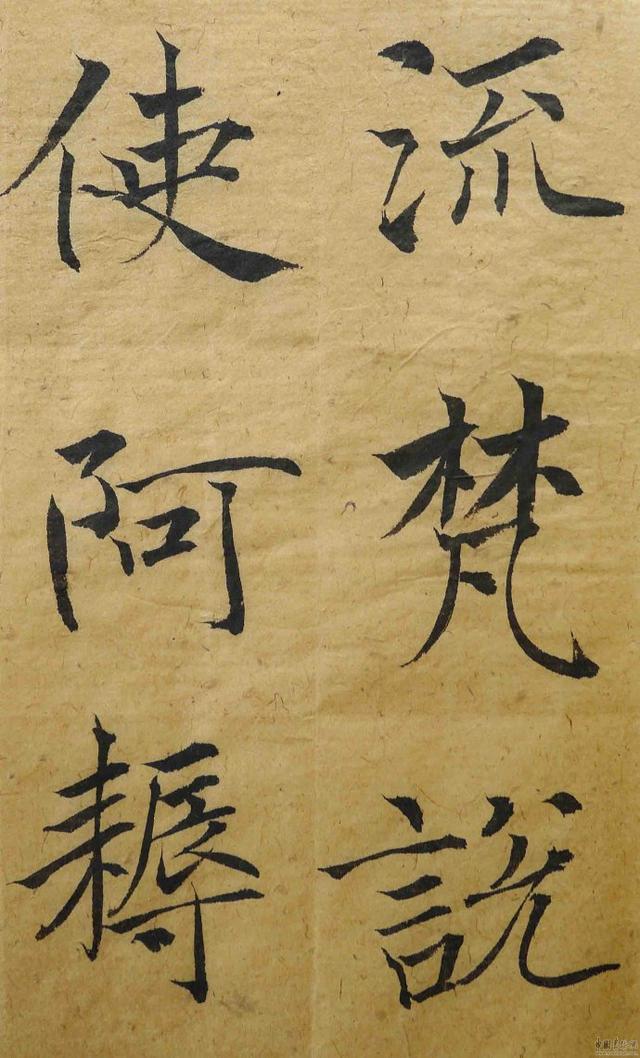 流梵說
使阿耨